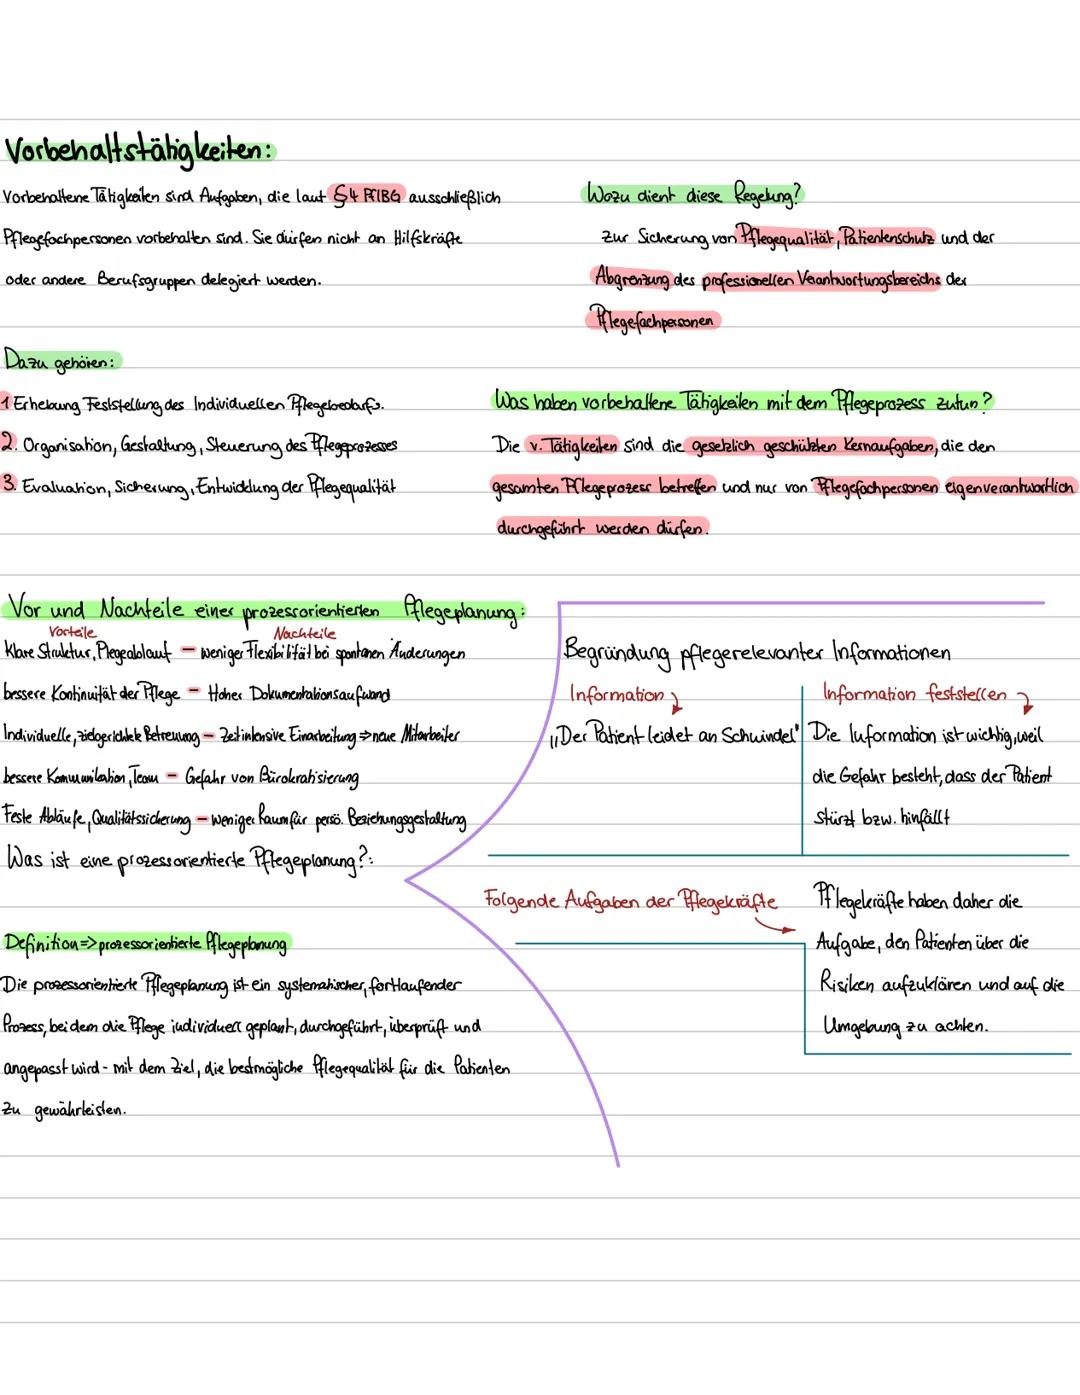 Vorbehaltstätigkeiten:
Vorbehaltene Tätigkeiten sind Aufgaben, die laut §4 PflBG ausschließlich
Pflegefachpersonen vorbehalten sind. Sie dürfen nicht an Hilfskräfte
oder andere Berufsgruppen delegiert werden.
Wozu dient diese Regelung?
zur Sicherung von Pflegequalität, Patientenschutz und der
Abgrenzung des professionellen Verantwortungsbereichs der
Pflegefachpersonen
Dazu gehören:
1 Erhebung Feststellung des Individuellen Pflegebedarfs.
2. Organisation, Gestaltung, Steuerung des Pflegeprozesses
3. Evaluation, Sicherung, Entwicklung der Pflegequalität
Was haben vorbehaltene Tätigkeiten mit dem Pflegeprozess zutun?
Die v. Tätigkeiten sind die gesetzlich geschützten Kernaufgaben, die den
gesamten Pflegeprozess betreffen und nur von Pflegefachpersonen eigenverantwortlich
durchgeführt werden dürfen.
Vor und Nachteile einer prozessorientierten Pflegeplanung:
Vorteile Nachteile
Klare Struktur, Plegeablauf – weniger Flexibilität bei spontanen Änderungen
bessere Kontinuität der Pflege – Hoher Dokumentationsaufwand
Individuelle, zielgerichtete Betreuung – Zeitintensive Einarbeitung => neue Mitarbeiter
bessere Kommunikation, Team – Gefahr von Bürokratisierung
Feste Abläufe, Qualitätssicherung – weniger Raum für persö. Beziehungsgestaltung
Was ist eine prozessorientierte Pflegeplanung?:
Definition => prozessorientierte Pflegeplanung
Die prozessorientierte Pflegeplanung ist ein systematischer, fortlaufender
Prozess, bei dem die Pflege individuell geplant, durchgeführt, überprüft und
angepasst wird - mit dem Ziel, die bestmögliche Pflegequalität für die Patienten
zu gewährleisten.
Begründung pflegerelevanter Informationen
Information
„Der Patient leidet an Schwindel"
Information feststellen
Die Information ist wichtig, weil
die Gefahr besteht, dass der Patient
stürzt bzw. hinfällt
Folgende Aufgaben der Pflegekräfte
Pflegekräfte haben daher die
Aufgabe, den Patienten über die
Risiken aufzuklären und auf die
Umgebung zu achten.